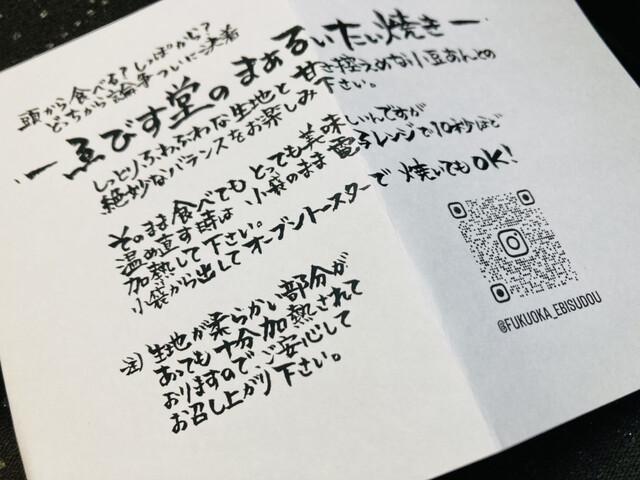 頭から食べる？しっぽから？
どちから論争ついに決着
ー ゑびす堂のまあるいたい焼き ー
しっとりふわふわな生地と甘さ控えめな小豆あんとの
絶妙なバランスをお楽しみ下さい。
そのまま食べてもとっても美味しいんですが
温め直す時は小袋のまま電子レンジで10秒ほど
加熱して下さい。
小袋から出してオーブントースターで焼いてもOK!
注)生地が柔らかい部分が
あっても十分加熱されて
おりますのでご安心して
お召し上がり下さい。
@FUKUOKA_EBISUDOU